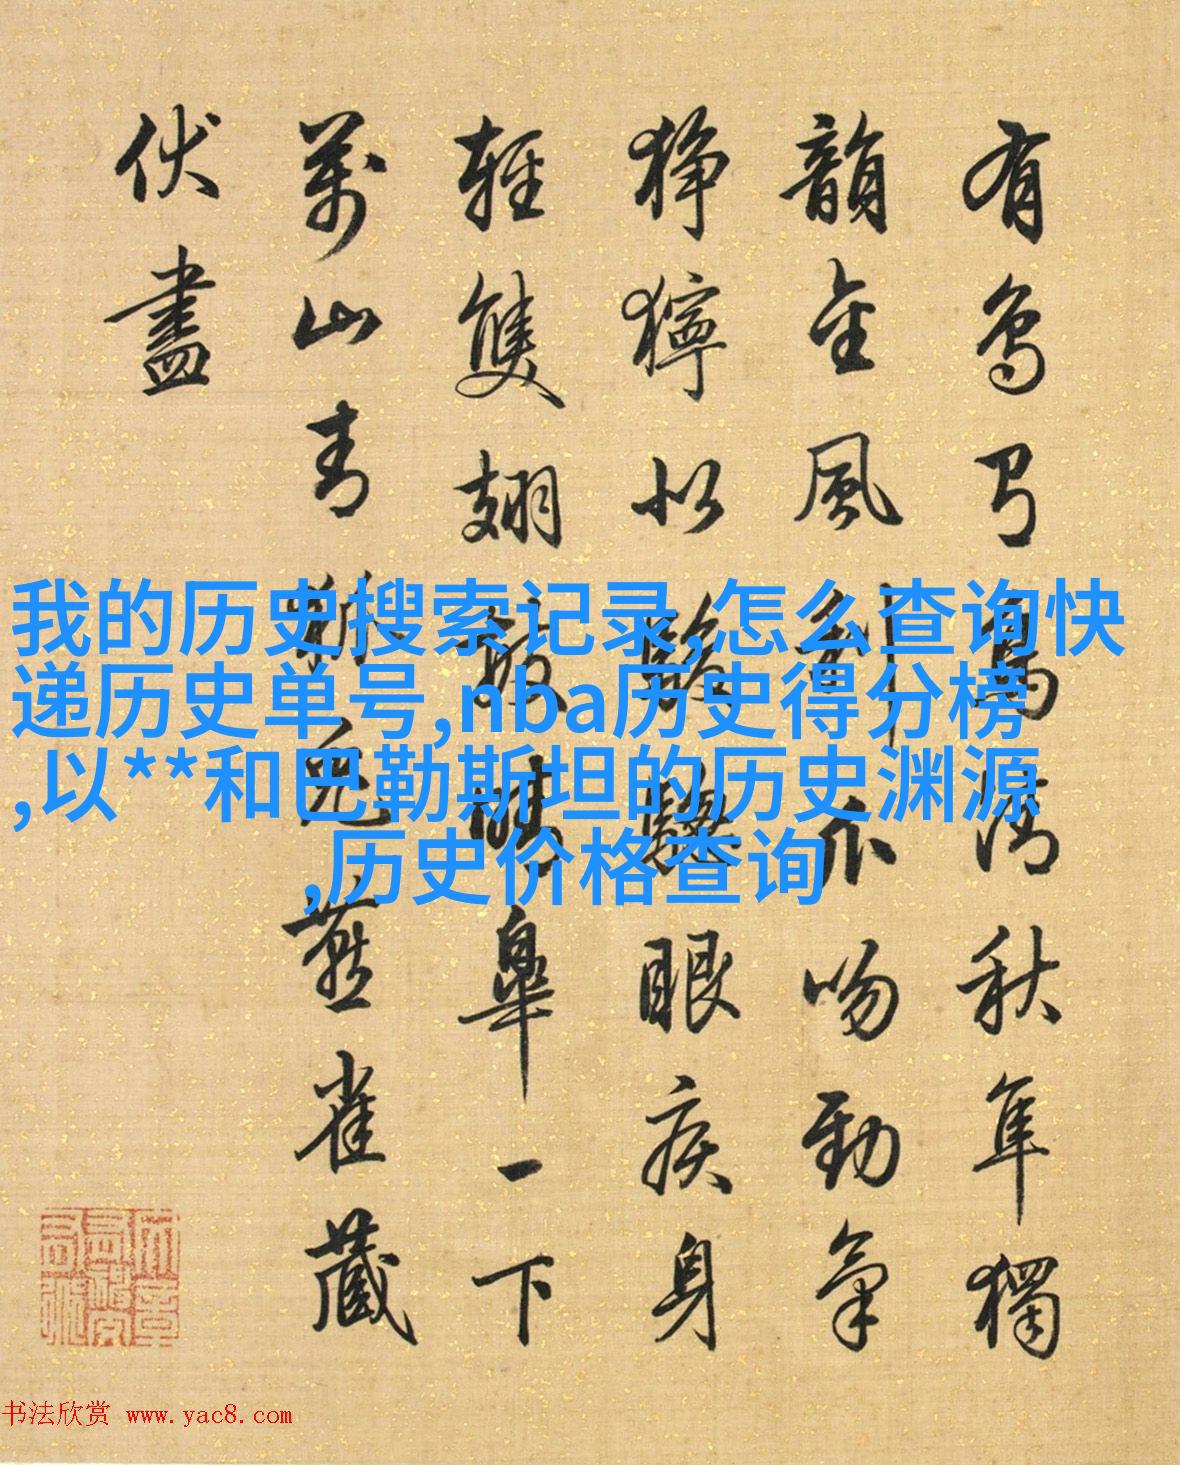 有鳥乃爲清秋隼獨
韻金風爪吻勁氣
猙獰似眼疾身
輕雙翅皋一下
萬山青兔燕雀藏
伏盡
我的历史搜索记录,怎么查询快
递历史单号,nba历史得分榜
,以**和巴勒斯坦的历史渊源
,历史价格查询
书法欣赏 www.yac8.com